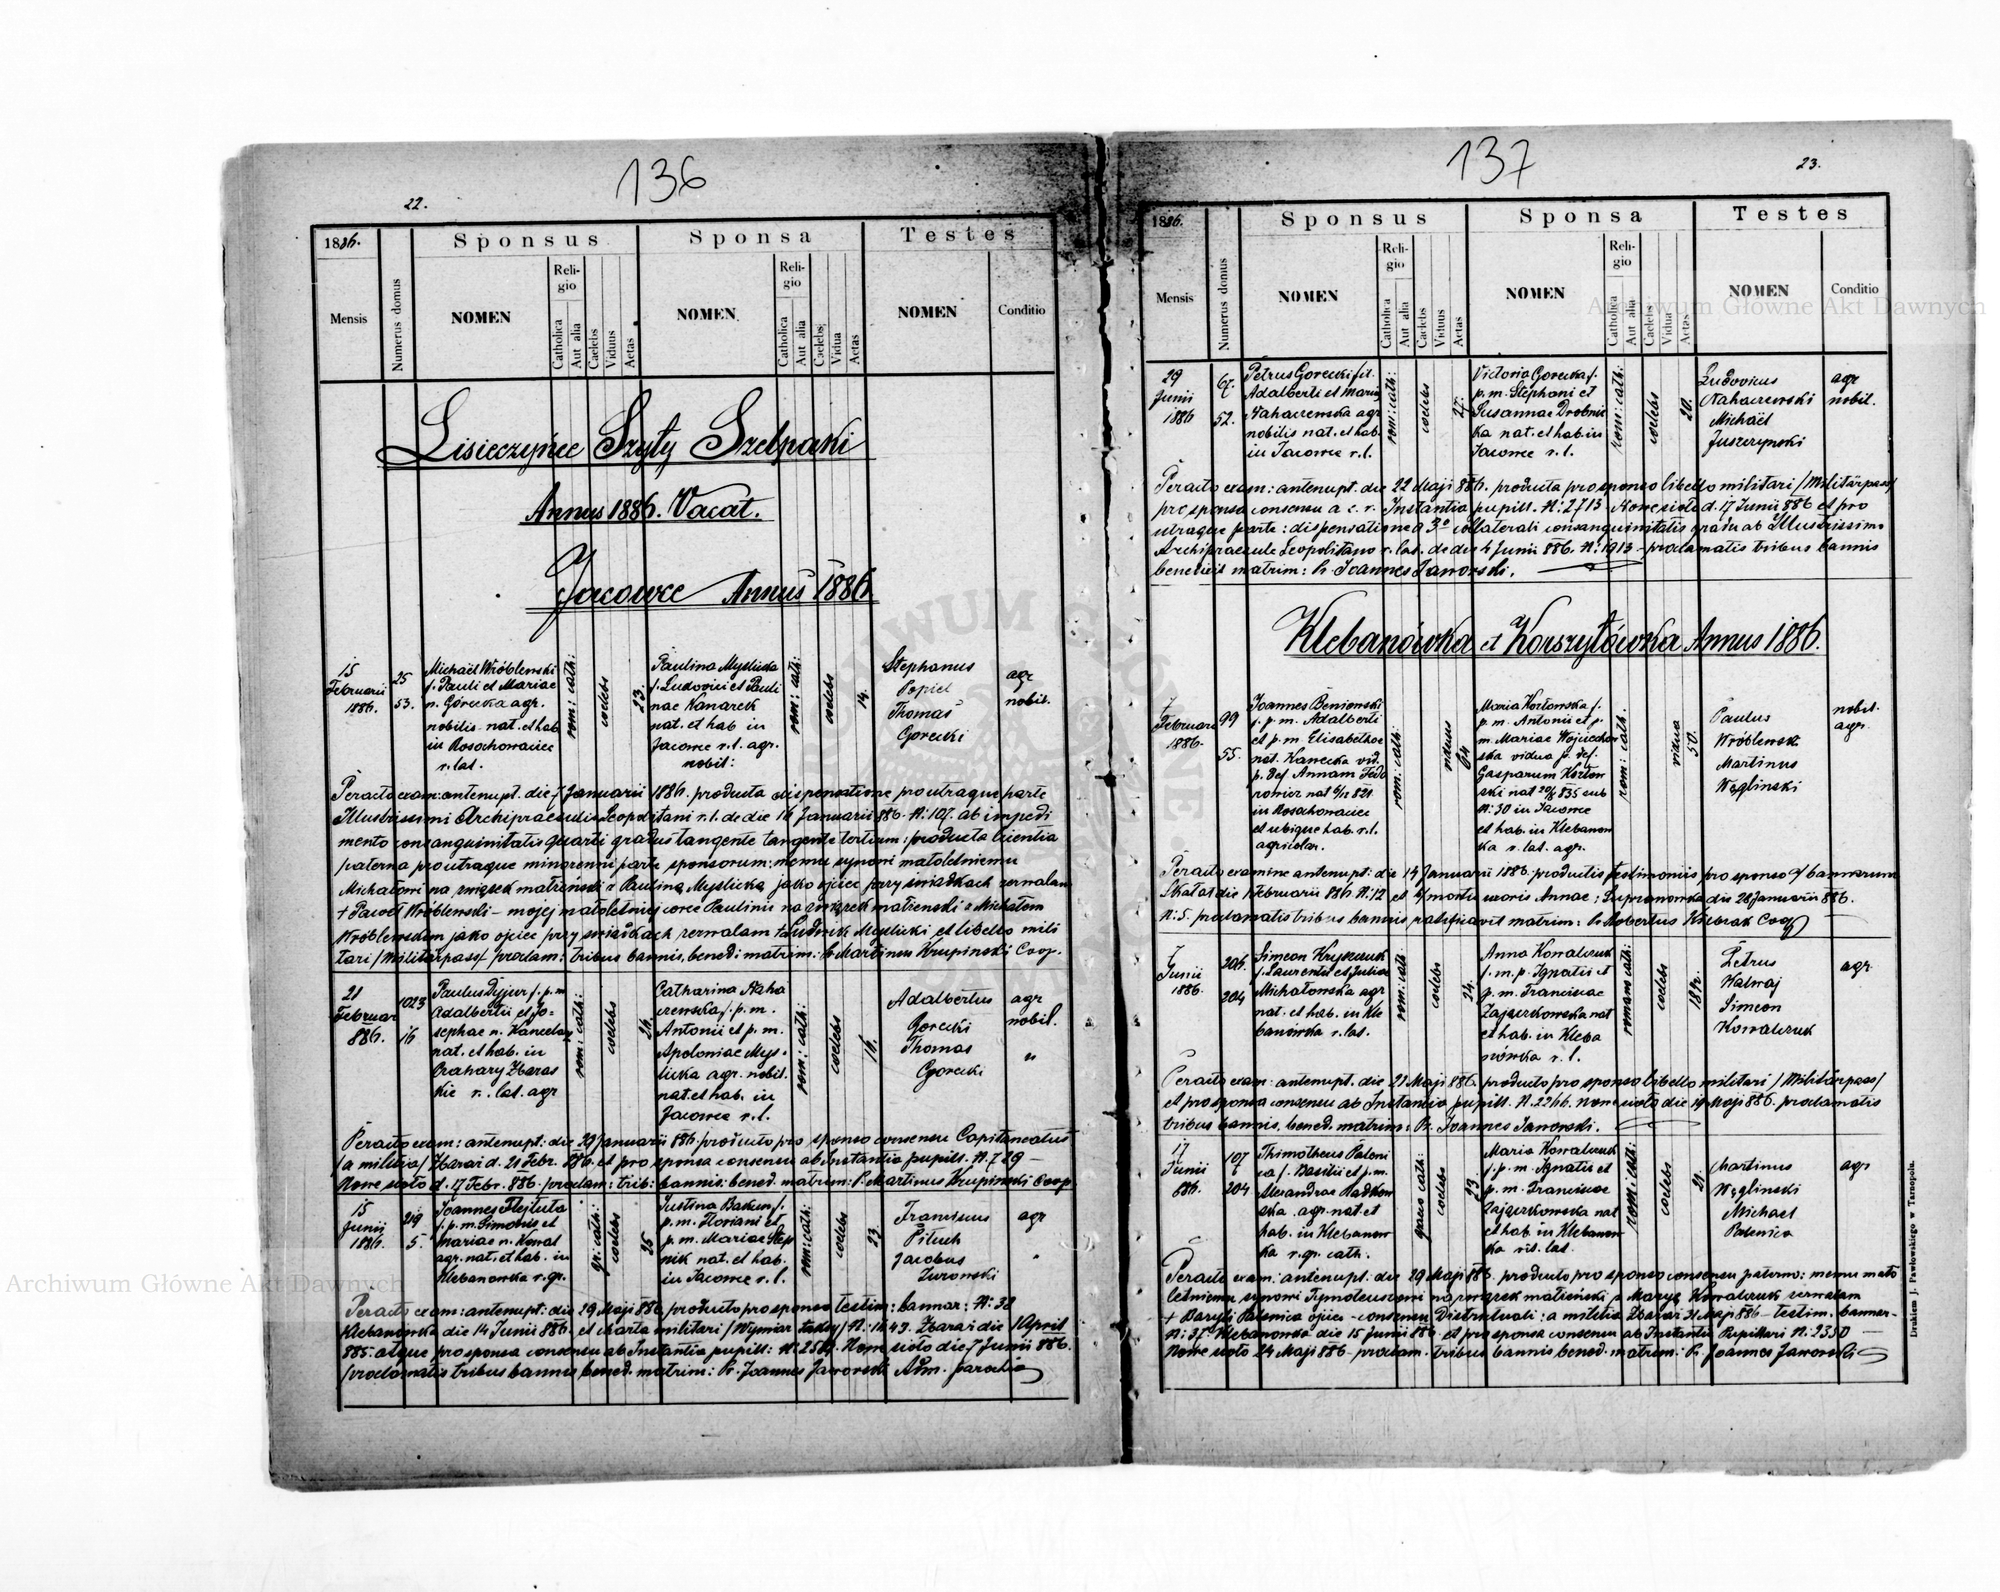 136
22.
1886.
Sponsus
Sponsa
Testes
Mensis
Numerus domus
NOMEN
Religio
Catholica
Aut alia
Caelebs
Viduus
Aetas
NOMEN
Religio
Catholica
Aut alia
Caelebs
Vidua
Aetas
NOMEN
Conditio
Lisieczyńce Szyły Szelpaki
Annus 1886. Vacat.
Jacowce Annus 1886.
15
Februarii
1886.
25
53.
Michaël Wróblewski
f. Pauli et Mariae
n. Górecka agr.
nobilis nat. et hab.
in Rosochowaciec
r. lat.
rom: cath:
coelebs
23.
Paulina Myslicka
f. Ludovici et Pauli
nae Kanarek
nat. et hab in
Jacowce r. l. agr.
nobil:
rom: cath:
coelebs
19.
Stephanus
Popiel
Thomas
Gorecki
agr
nobil.
Peracto exam: antenupt. die 7 Januarii 1886. producta dispensatione pro utraque parte
Illustrissimi Archipraesulis Leopolitani r. l. de die 16 Januarii 886. N: 107. ab impedi
mento consanguinitatis quarti gradus tangente tertium: producta licentia
paterna pro utraque minorenni parte sponsorum: memu synowi małoletniemu
Michałowi na związek małżeński z Pauliną Myslicką jako ojciec przy świadkach zezwalam
+ Paweł Wróblewski – mojej małoletniej córce Paulinie na związek małżenski z Michałem
Wróblewskim jako ojciec przy świadkach zezwalam Ludwik Myslicki et libello mili
tari /Militärpass/ proclam: tribus bannis, bened: matrim: P. Martinus Krupinski Coop.
21
Februar
886.
1023
16
Paulus Dyjur f. p. m
Adalberti et Jo-
sephae n.
nat. et hab. in
Zbaras
kie r. lat. agr
rom: cath:
coelebs
26.
Catharina Naha
czewska f. p. m.
Antonii et p. m.
Apoloniae Mys-
licka agr. nobil.
nat. et hab. in
Jacowce r. l.
rom: cath:
coelebs
16.
Adalbertus
Gorecki
Thomas
Gorecki
agr
nobil.
"
Peracto exam: antenupt: die 29 Januarii 886. producto pro sponso consensu Capitaneatus
/a militia/ Zbaraż d. 21 Febr. 886. et pro sponsa consensu ab Instantia pupill. N. 729 –
Nowe sioło d. 17 Febr. 886. proclam: trib: bannis: bened: matrum: P. Martinus Krupinski Coop.
15
Junii
1886.
219
5.
Joannes Flejtuta
f. p. m. Simonis et
Mariae n. Kowal
agr. nat. et hab. in
Klebanowka r. gr.
gr: cath:
coelebs
25
Justina Bakun f.
p. m. Floriani et
p. m. Mariae
nik nat. et hab.
in Jacowce r. l.
rom: cath:
coelebs
23.
Franciscus
Pituch
Jacobus
Zurowski
agr
"
Peracto exam: antenupt: die 29 Maji 886. producto pro sponso testim: bannor: N: 38
Klebanowka die 14 Junii 886. et charta militari /Wymiar taksy/ N: 1643. Zbaraż die 1 April
885. atque pro sponsa consensu ab Instantia pupill: N. Nowe sioło die 7 Junii 886.
proclamatis tribus bannis bened. matrim: P. Joannes Jaworski Adm. parochiae
137
23.
1886.
Sponsus
Sponsa
Testes
Mensis
Numerus domus
NOMEN
Religio
Catholica
Aut alia
Caelebs
Viduus
Aetas
NOMEN
Religio
Catholica
Aut alia
Caelebs
Vidua
Aetas
NOMEN
Conditio
29
Junii
1886
67.
52.
Petrus Gorecki fil.
Adalberti et Mariae
Nahaczewska agr
nobilis nat. et hab.
in Jacowce r. l.
rom: cath:
coelebs
27.
Victoria Gorecka f.
p. m. Stephani et
Susannae Drobnic
ka nat. et hab. in
Jacowce r. l.
rom: cath:
coelebs
20.
Ludovicus
Nahaczewski
Michaël
Juszczynski
agr
nobil.
Peracto exam: antenupt. die 22 Maji 886. producta pro sponso libello militari /Militärpass/
pro sponsa consensu a c. r. Instantia pupill. N: 2713 – Nowe sioło d. 17 Junii 886 et pro
utraque parte: dispensatione a 3º collaterali consanguinitatis gradu ab Illustrissimo
Archipraesule Leopolitano r. lat. de die 4 Junii 886. N: 1913 – proclamatis tribus bannis
benedixit matrim: P. Joannes Jaworski.
Klebanówka et Korszyłówka Annus 1886.
7
Februarii
1886.
99
55.
Joannes Beniowski
f. p. m. Adalberti
et p. m. Elisabethae
nat. Kawecka vid.
p. def Annam Fedo
rowicz nat 6/12 821
in Rosochowaciec
et ubique hab. r. l.
agricola.
rom: cath:
viduus
64
Maria Kozłowska f.
p. m. Antonii et p.
m. Mariae Wojciechow
ska vidua p. def.
Gasparum Kozłow
ski nat 20/8 835 sub
N: 30 in Jacowce
et hab. in Klebanow
ka r. lat. agr.
rom: cath.
vidua
50.
Paulus
Wróblewsk
Martinus
Węglinski
nobil.
agr.
Peracto examine antenupt: die 14 Januarii 1886. productis testimoniis pro sponso a/ bannorum
Skałat die 1 Februarii 886. N: 12 et b/ mortis uxoris Annae: Supranówka die 28 Januarii 886.
N: 5. proclamatis tribus bannis ratificavit matrim: P. Robertus Coop
7
Junii
1886.
206.
204
Simeon Kryszczuk
f. Laurentii et Juliae
Michałowska agr
nat. et hab. in Kle
banówka r. lat.
rom: cath
coelebs
24.
Anna Kowalczuk
f. m. p. Ignatii et
p. m. Franciscae
Zajączkowska nat
et hab. in Kleba
nówka r. l.
romano cath:
coelebs
Petrus
Halwaj
Simeon
Kowalczuk
agr.
Peracto exam: antenupt. die 21 Maji 886. producto pro sponso libello militari /Militärpass/
et pro sponsa consensu ab Instantia pupill. N. 2266. Nowe sioło die 19 Maji 886. proclamatis
tribus bannis, bened. matrim: P. Joannes Jaworski.
17
Junii
886.
107
204
Thimotheus Paleni
ca f. Basilii et p. m.
Alexandrae Radkow
ska agr. nat et
hab. in Klebanow
ka r. gr. cath.
graeo cath:
coelebs
23.
Maria Kowalczuk
f. p. m. Ignatii et
p. m. Franciscae
Zajączkowska nat
et hab. in Klebanow
ka rit. lat.
rom: cath:
coelebs
21.
Martinus
Węglinski
Michael
Palenica
agr
Peracto exam: antenupt. die 29 Maji 886. producto pro sponso consensu paterno: memu mało
letniemu synowi Tymoteuszowi na związek małżeński z Maryą Kowalczuk zezwalam
+ Basyli Palenica ojciec – consensu Districtuali: a militia Zbaraż 31 Maji 886 – testim. bannor-
N: 37. Klebanowka die 15 Junii 886. et pro sponsa consensu ab Instantia Pupillari N: 2350 –
Nowe sioło 24 Maji 886 – proclam. tribus bannis bened. matrim: P. Joannes Jaworski
Drukiem J. Pawłowskiego w Tarnopolu.
Archiwum Główne Akt Dawnych
Archiwum Główne Akt Dawnych